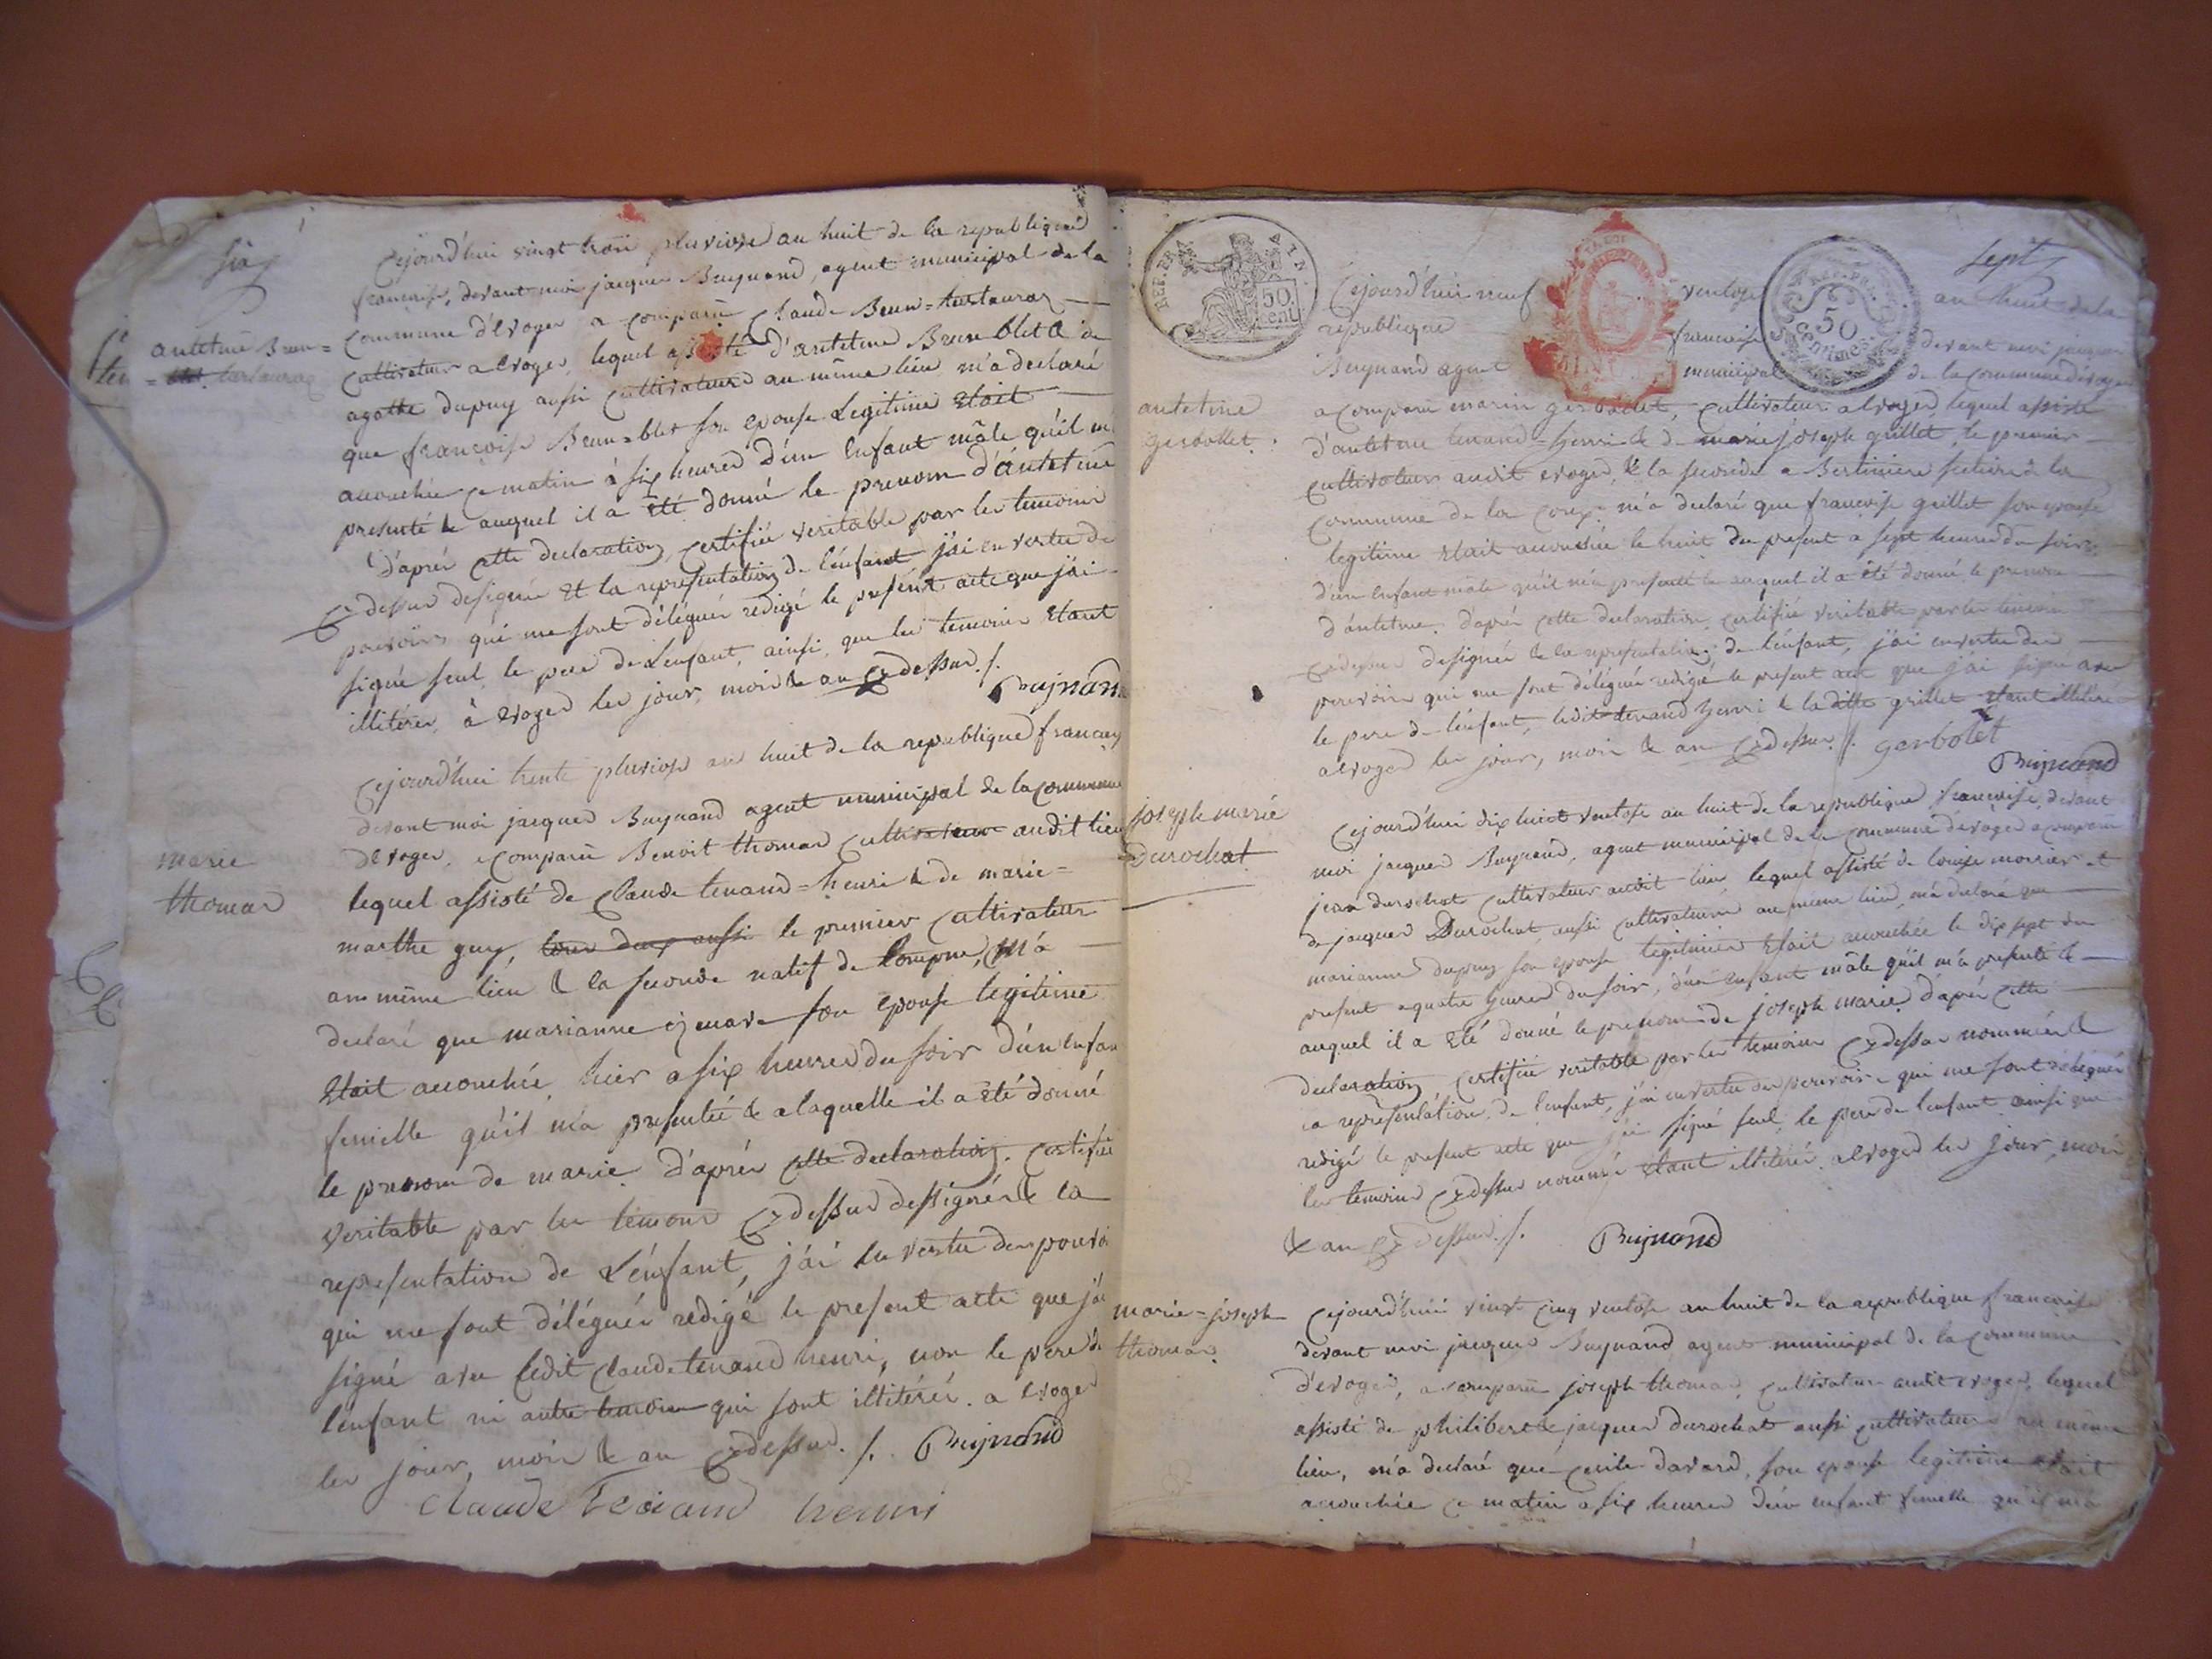 six
antetme Brun=
= tartaraz
Cejourd'hui vingt trois pluviose an huit de la republique
francaise, devant moi jacques Buynand, agent municipal de la
commune d'Evoges a comparu Claude Brun=tartaraz
cultivateur a Evoges, lequel assisté d'antetme Brun blet & de
agathe dupuy aussi cultivateurs au même lieu m'a declaré
que francoise Brun=blet son epouse Legitime etait
accouchée ce matin à six heures d'un Enfant mâle qu'il m'a
presenté & auquel il a été donné le prenom d'antetme
D'aprés cette declaration, certifiée veritable par les temoins
Cy dessus designés Et la representation de l'enfant j'ai en vertu des
pouvoirs qui me sont délégués redigé le present acte que j'ai
signé seul, le pere de L'enfant, ainsi que les temoins etant
illitérés, à Evoges les jour, mois & an Cy dessus ./.
Buynand
marie
thomas
Cejourd'hui trente pluviose an huit de la republique francaise
devant moi jacques Buynand agent municipal de la commune
d'Evoges, a comparu Benoit thomas cultivateur audit lieu
lequel assisté de Claude tenand=henri & de marie=
marthe guy, tous deux aussi le premier cultivateur
au même lieu & la seconde natif de Lompne, m'a
declaré que marianne son epouse legitime
etait accouchée, hier a six heures du soir d'un enfant
femelle qu'il m'a presentée & a laquelle il a été donné
le prenom de marie. D'aprés cette declaration. certifiée
veritable par les temoins Cy dessus dessignés & la
representation de L'énfant, j'ai en vertu des pouvoirs
qui me sont délégués redigé le present acte que j'ai
signé avec ledit Claude tenand henri, non le pere de
l'enfant ni autre temoin qui sont illitérés. a Evoges
les jour, mois & an Cy dessus. /. Buynand
Claude Tenand henri
REP. FRA AIN
50 cent
REP. FRA
50 Centimes
sept
antetme
gerbollet.
Cejourd'hui neuf ventose an huit de la
republique francaise devant moi jacques
Buynand agent municipal de la commune d'Evoges
a comparu marin gerbollet, cultivateur a Evoges lequel assisté
d'antetme tenand=henri & de marie joseph guillet, le premier
cultivateur audit evoges, & la seconde a section de la
commune de la m'a declaré que francoise guillet son epouse
legitime etait accouchée le huit du present a sept heures du soir
d'un enfant male qu'il m'a presenté & auquel il a été donné le prenom
d'antetme. d'aprés cette declaration, certifiée veritable par les temoins
cy dessus designés & la representation de l'énfant, j'ai en vertu des
pouvoirs qui me sont délégués redigé le present acte que j'ai signé avec
le pere de l'enfant, ledit tenand henri & la ditte guillet etant illitérés
a Evoges les jour, mois & an Cy dessus. /. gerbolet
Buynand
joseph marie
Durochat
Cejourd'hui dix huit ventose an huit de la republique francaise, devant
moi jacques Buynand, agent municipal de la commune d'evoges a comparu
jean durochat cultivateur audit lieu lequel assisté de louise mornier et
de jacques Durochat aussi cultivateurs au même lieu, m'a declaré que
marianne dupuy son epouse legitimes etait accouchée le dix sept du
present a quatre heures du soir, d'un enfant mâle qu'il m'a presenté &
auquel il a été donné le prenom de joseph marie d'aprés cette
declaration, certifiée veritable par les temoins Cy dessus nommés &
la representation de l'enfant, j'ai en vertu des pouvoirs qui me sont délégués
redigé le present acte que j'ai signé seul, le pere de l'enfant ainsi que
les temoins cy dessus nommés etant illitérés. a Evoges les jour, mois
& an Cy dessus. /. Buynand
marie=joseph
thomas.
Cejourd'hui vingt cinq ventose an huit de la republique francaise
devant moi jacques Buynand, agent municipal de la commune
d'evoges, a comparu joseph thomas, cultivateur audit evoges, lequel
assisté de philibert & jacques durochat aussi cultivateurs au même
lieu, m'a declaré que cecile davard, son epouse legitime etait
accouchée ce matin a six heures d'un enfant femelle qu'il m'a